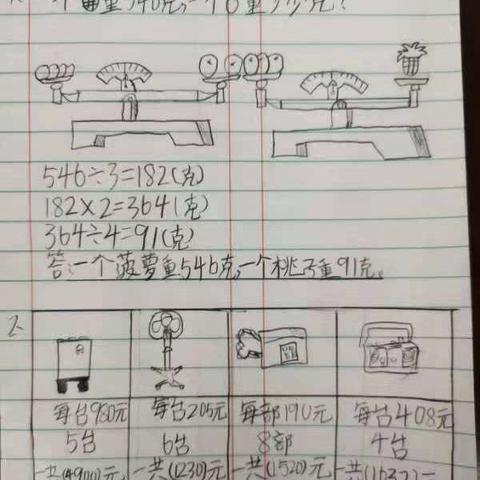 重546克,一个
546÷3=182(克)
182×2=364(克)
364÷4=91(克)
答:一个菠萝重546克,一个桃子重91克。
2、
每台980元 每台205元 每部190元 每台408元
5台 6台 8部 4台
一共(4900)元 一共(1230)元 一共(1520)元 一共(1632)